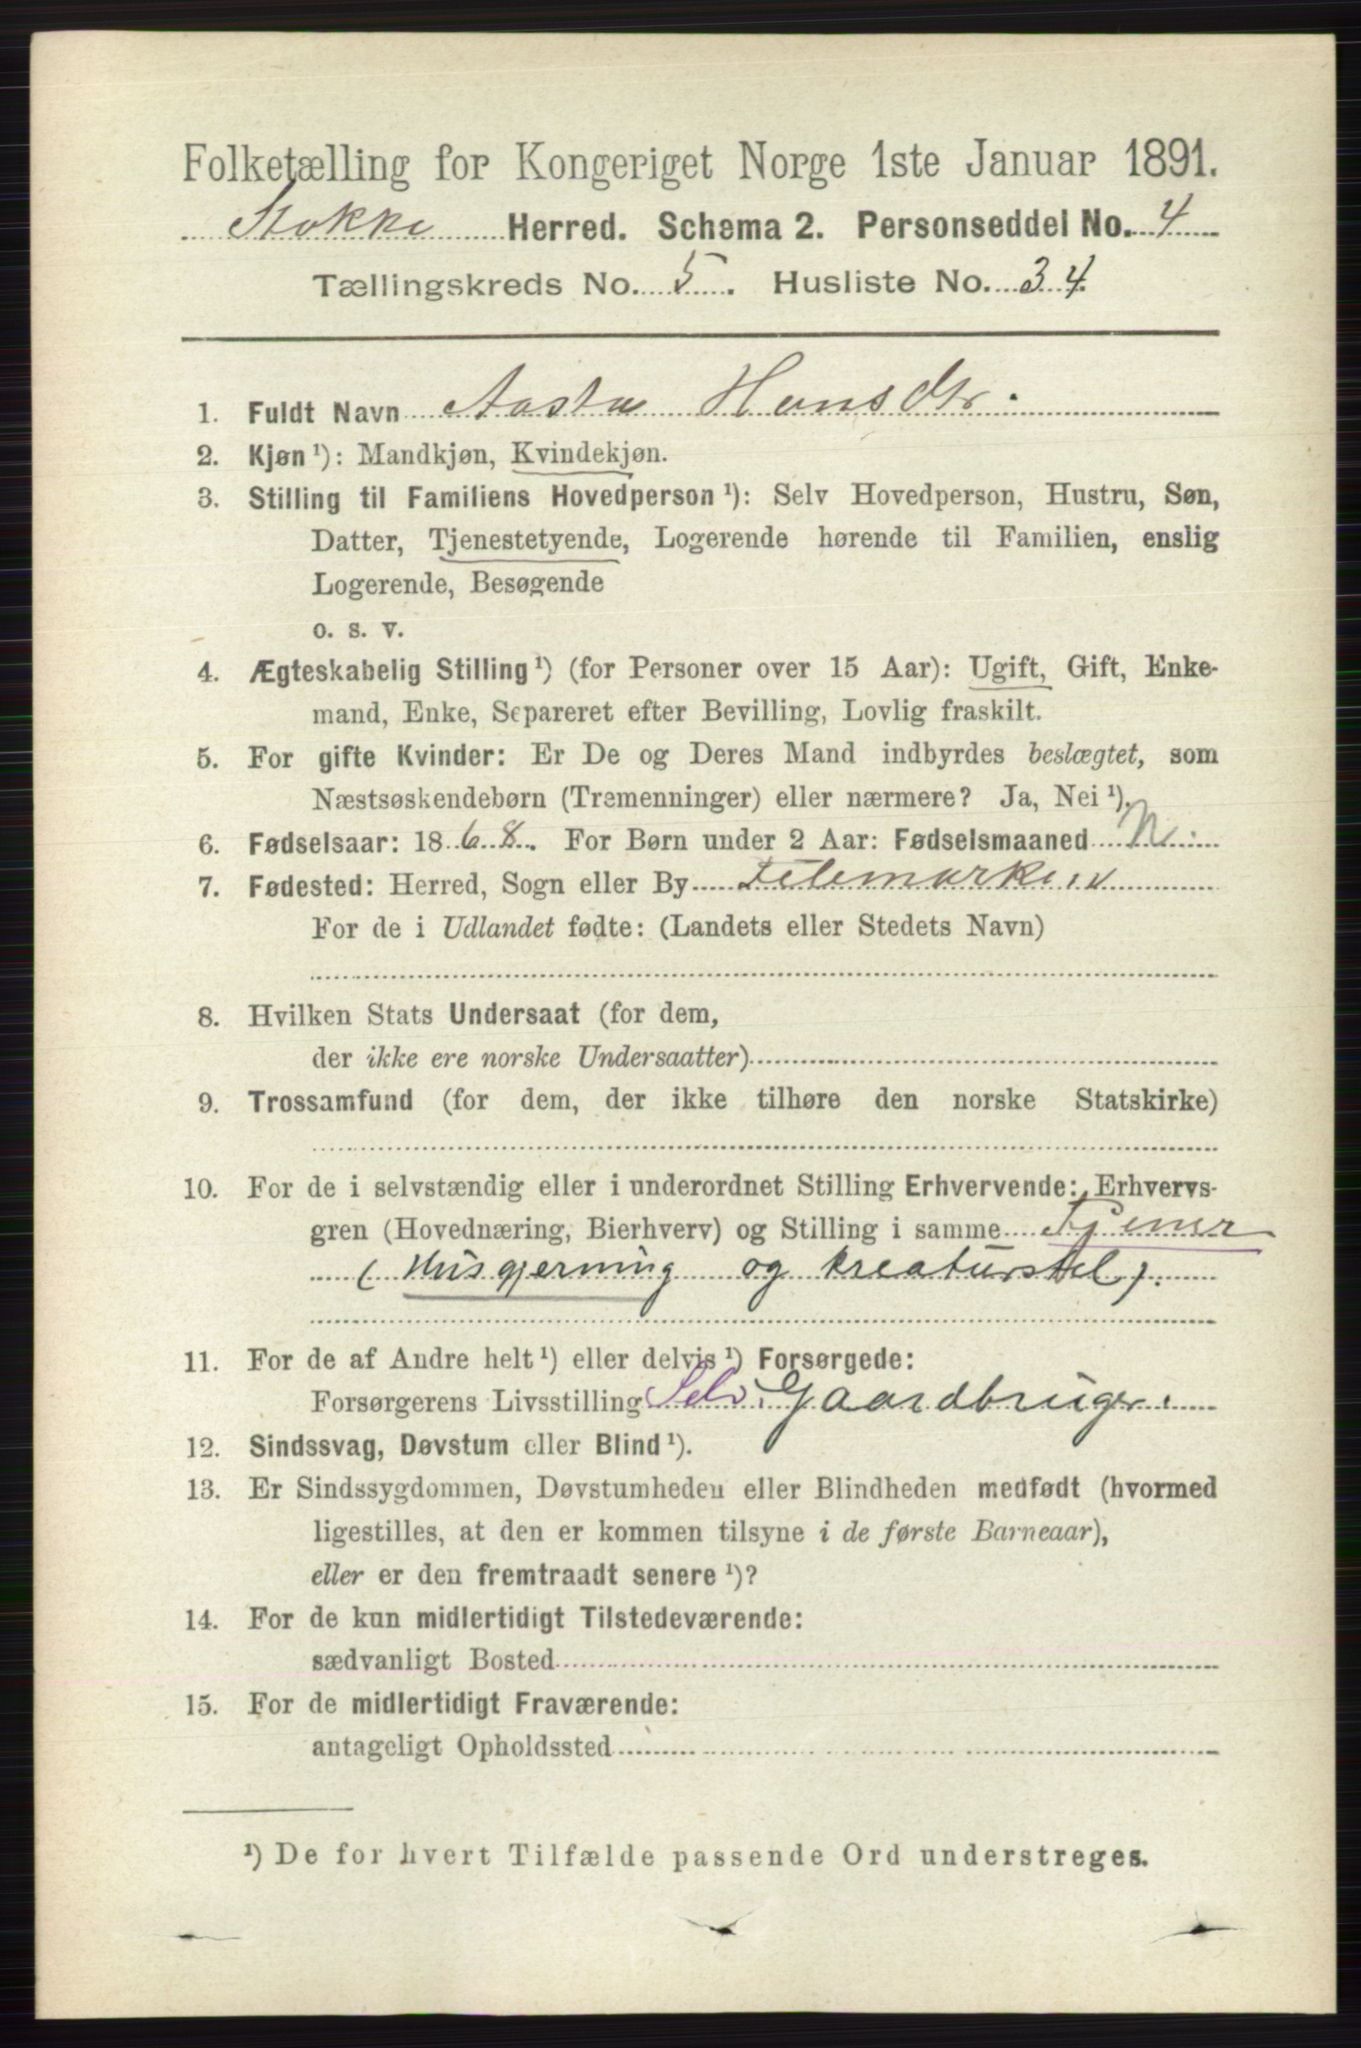 Folketælling for Kongeriget Norge 1ste Januar 1891.
Stokke Herred. Schema 2. Personseddel No. 4
Tællingskreds No. 5. Husliste No. 34
1. Fuldt Navn Aasta Hansdtr.
2. Kjøn¹): Mandkjøn, Kvindekjøn.
3. Stilling til Familiens Hovedperson¹): Selv Hovedperson, Hustru, Søn,
Datter, Tjenestetyende, Logerende hørende til Familien, enslig
Logerende, Besøgende
o. s. v.
4. Ægteskabelig Stilling¹) (for Personer over 15 Aar): Ugift, Gift, Enke-
mand, Enke, Separeret efter Bevilling, Lovlig fraskilt.
5. For gifte Kvinder: Er De og Deres Mand indbyrdes beslægtet, som
Næstsøskendebørn (Tremenninger) eller nærmere? Ja, Nei¹).
6. Fødselsaar: 1868. For Børn under 2 Aar: Fødselsmaaned N.
7. Fødested: Herred, Sogn eller By Telemarken
For de i Udlandet fødte: (Landets eller Stedets Navn)
8. Hvilken Stats Undersaat (for dem,
der ikke ere norske Undersaatter)
9. Trossamfund (for dem, der ikke tilhøre den norske Statskirke)
10. For de i selvstændig eller i underordnet Stilling Erhvervende: Erhvervs-
gren (Hovednæring, Bierhverv) og Stilling i samme Tjener
(Husgjerning og Kreaturstel).
11. For de af Andre helt¹) eller delvis¹) Forsørgede:
Forsørgerens Livsstilling Selv. Gaardbruger.
12. Sindssvag, Døvstum eller Blind¹).
13. Er Sindssygdommen, Døvstumheden eller Blindheden medfødt (hvormed
ligestilles, at den er kommen tilsyne i de første Barneaar),
eller er den fremtraadt senere¹)?
14. For de kun midlertidigt Tilstedeværende:
sædvanligt Bosted
15. For de midlertidigt Fraværende:
antageligt Opholdssted
¹) De for hvert Tilfælde passende Ord understreges.